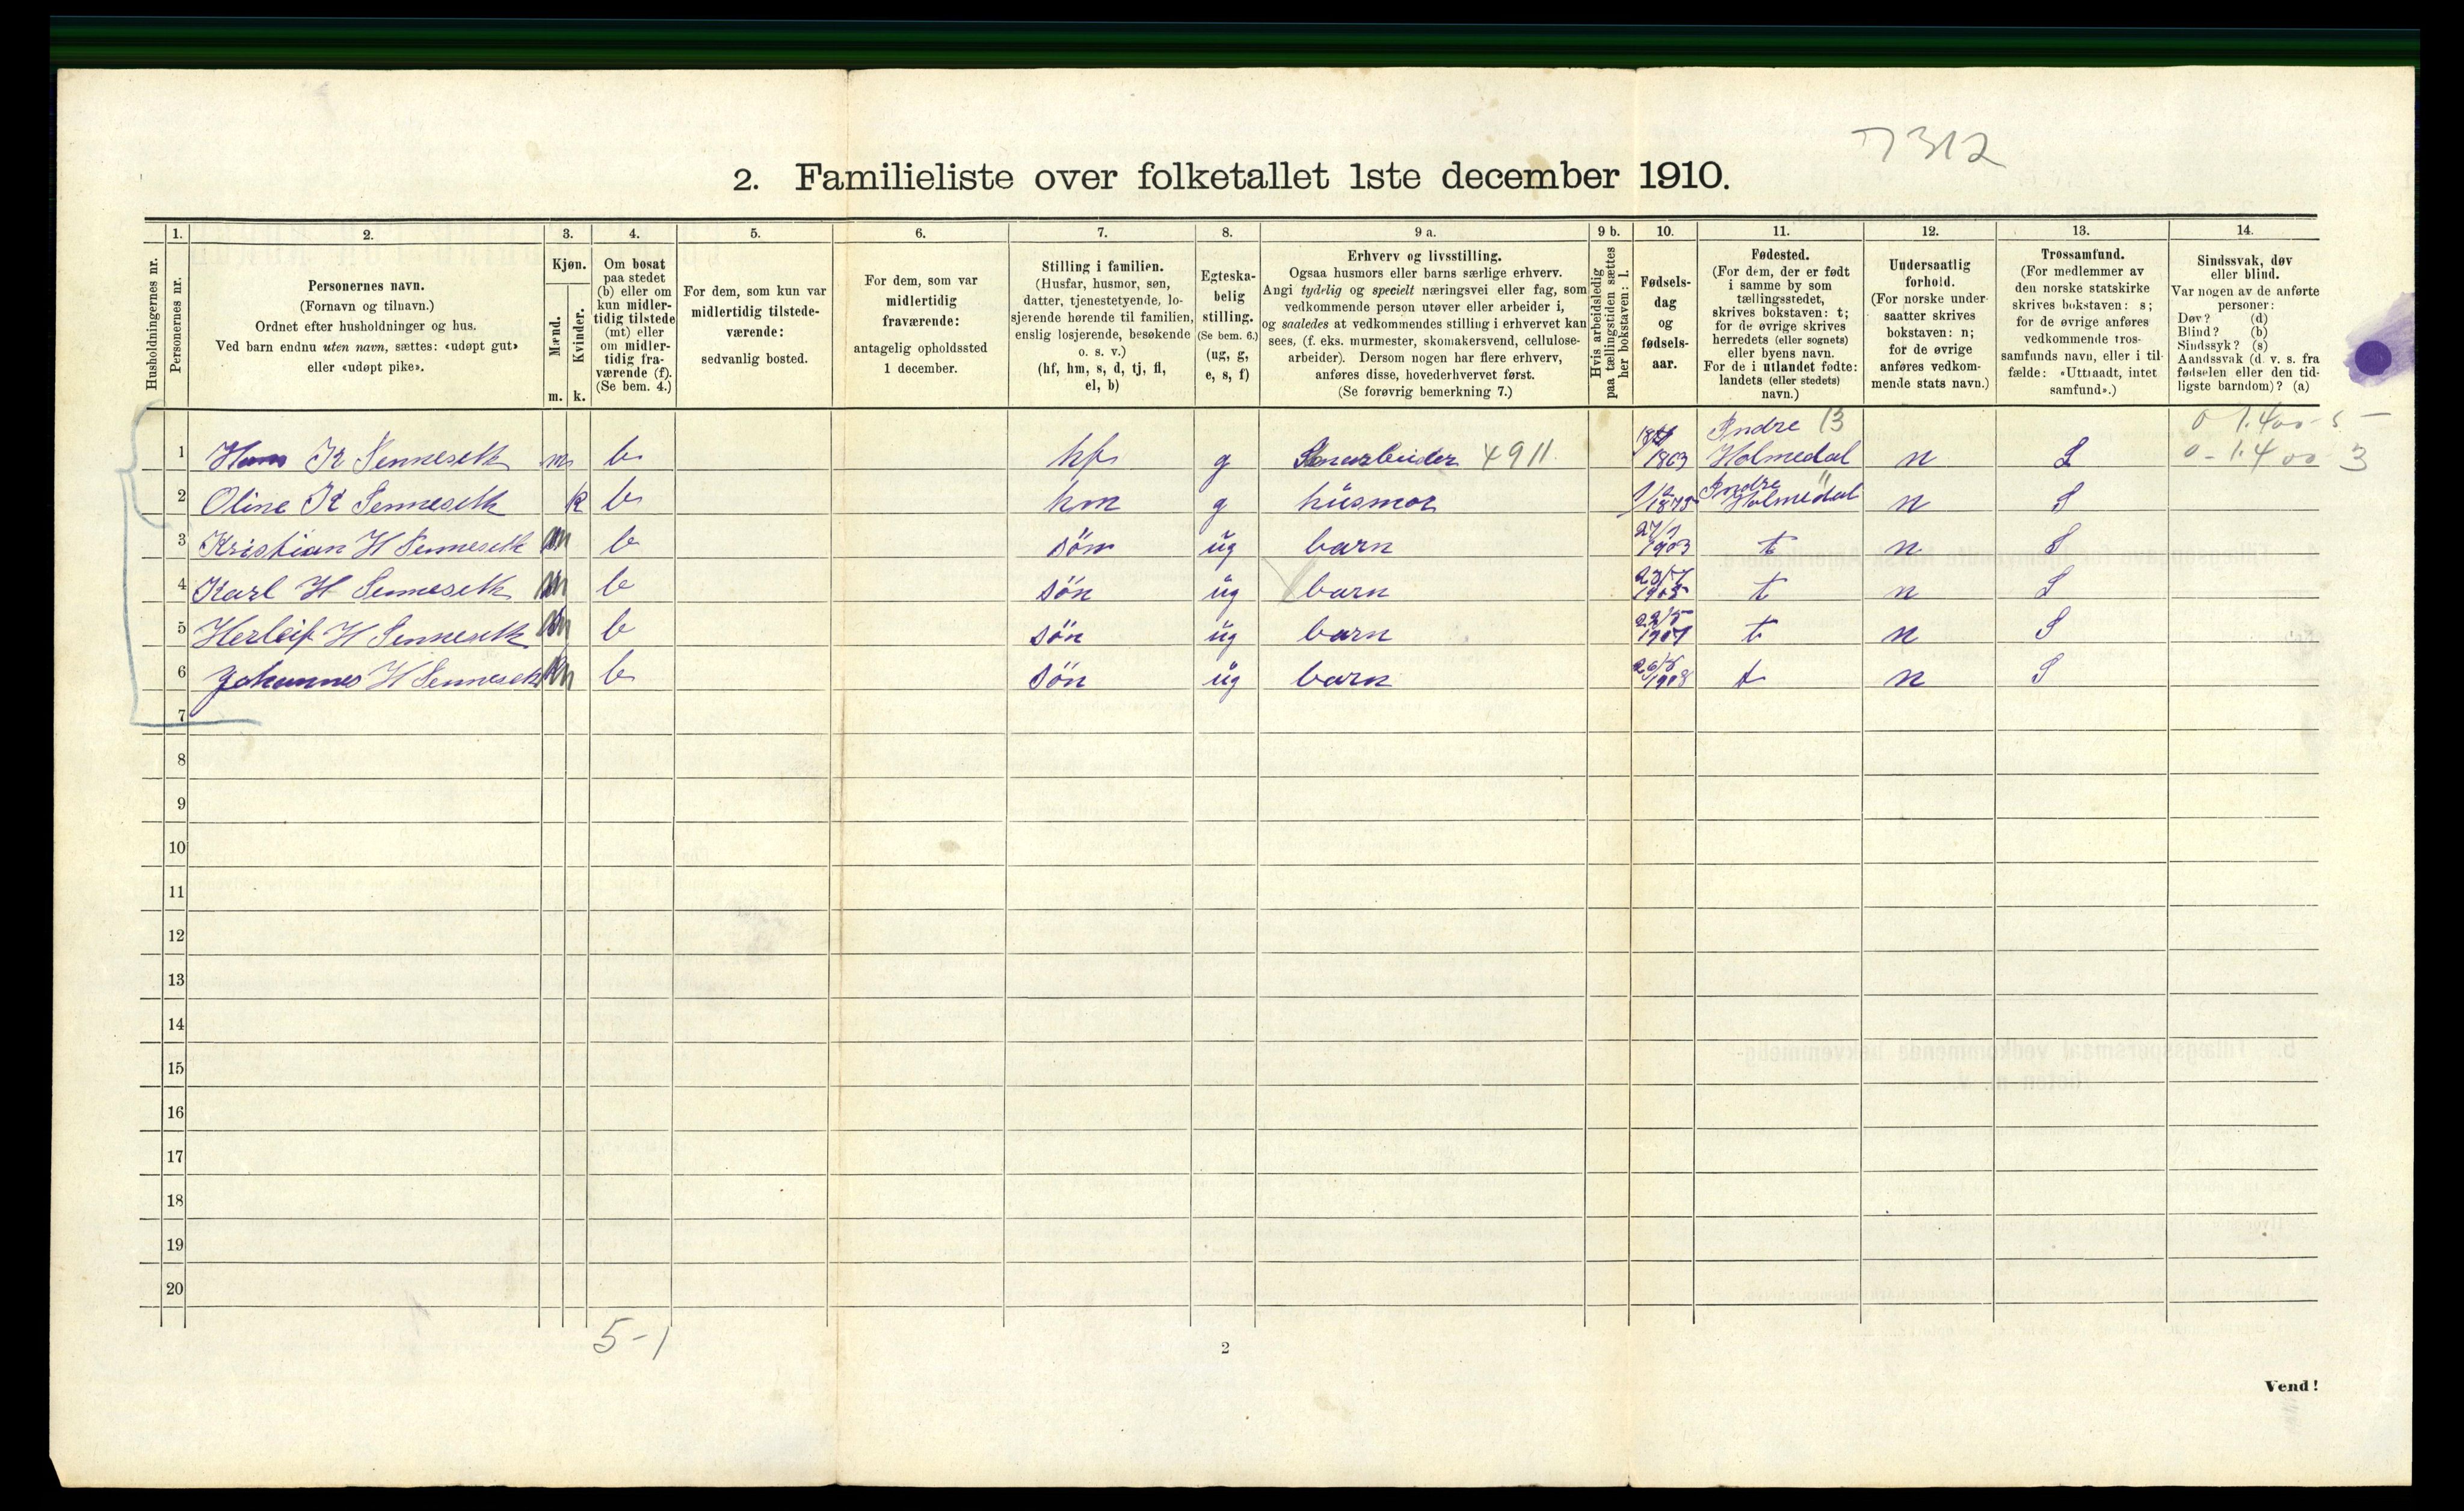 7312
2. Familieliste over folketallet 1ste december 1910.
1. 2. 3. 4. 5. 6. 7. 8. 9 a. 9 b. 10. 11. 12. 13. 14.
Husholdningernes nr.
Personernes nr.
Personernes navn.
(Fornavn og tilnavn.)
Ordnet efter husholdninger og hus.
Ved barn endnu uten navn, sættes: «udøpt gut»
eller «udøpt pike».
Kjøn.
Mænd.
Kvinder.
m. k.
Om bosat
paa stedet
(b) eller om
kun midler-
tidig tilstede
(mt) eller
om midler-
tidig fra-
værende (f).
(Se bem. 4.)
For dem, som kun var
midlertidig tilstede-
værende:
sedvanlig bosted.
For dem, som var
midlertidig
fraværende:
antagelig opholdssted
1 december.
Stilling i familien.
(Husfar, husmor, søn,
datter, tjenestetyende, lo-
sjerende hørende til familien,
enslig losjerende, besøkende
o. s. v.)
(hf, hm, s, d, tj, fl,
el, b)
Egteska-
belig
stilling.
(Se bem. 6.)
(ug, g,
e, s, f)
Erhverv og livsstilling.
Ogsaa husmors eller barns særlige erhverv.
Angi tydelig og specielt næringsvei eller fag, som
vedkommende person utøver eller arbeider i,
og saaledes at vedkommendes stilling i erhvervet kan
sees, (f. eks. murmester, skomakersvend, cellulose-
arbeider). Dersom nogen har flere erhverv,
anføres disse, hovederhvervet først.
(Se forøvrig bemerkning 7.)
Hvis arbeidsledig
paa tællingstiden sættes
her bokstaven: l.
Fødsels-
dag
og
fødsels-
aar.
Fødested.
(For dem, der er født
i samme by som
tællingsstedet,
skrives bokstaven: t;
for de øvrige skrives
herredets (eller sognets)
eller byens navn.
For de i utlandet fødte:
landets (eller stedets)
navn.)
Undersaatlig
forhold.
(For norske under-
saatter skrives
bokstaven: n;
for de øvrige
anføres vedkom-
mende stats navn.)
Trossamfund.
(For medlemmer av
den norske statskirke
skrives bokstaven: s;
for de øvrige anføres
vedkommende tros-
samfunds navn, eller i til-
fælde: «Uttraadt, intet
samfund».)
Sindssvak, døv
eller blind.
Var nogen av de anførte
personer:
Døv? (d)
Blind? (b)
Sindssyk? (s)
Aandssvak (d. v. s. fra
fødselen eller den tid-
ligste barndom)? (a)
Indre 13 0 1.400-5
1 Hans K Senneseth m b hf g 4911 1863 Holmedal n S 0-1.400 3
2 Oline K Senneseth k b hm g husmor 1/12 1875 Indre Holmedal n S
3 Kristian H Senneseth m b søn ug barn 27/1 1903 t n S
4 Karl H Senneseth m b søn ug barn 23/7 1905 t n S
5 Herleif H Senneseth m b søn ug barn 22/5 1907 t n S
6 Johannes H Senneseth m b søn ug barn 26/8 1908 t n S
7
8
9
10
11
12
13
14
15
16
17
18
19
20
5-1
2
Vend!